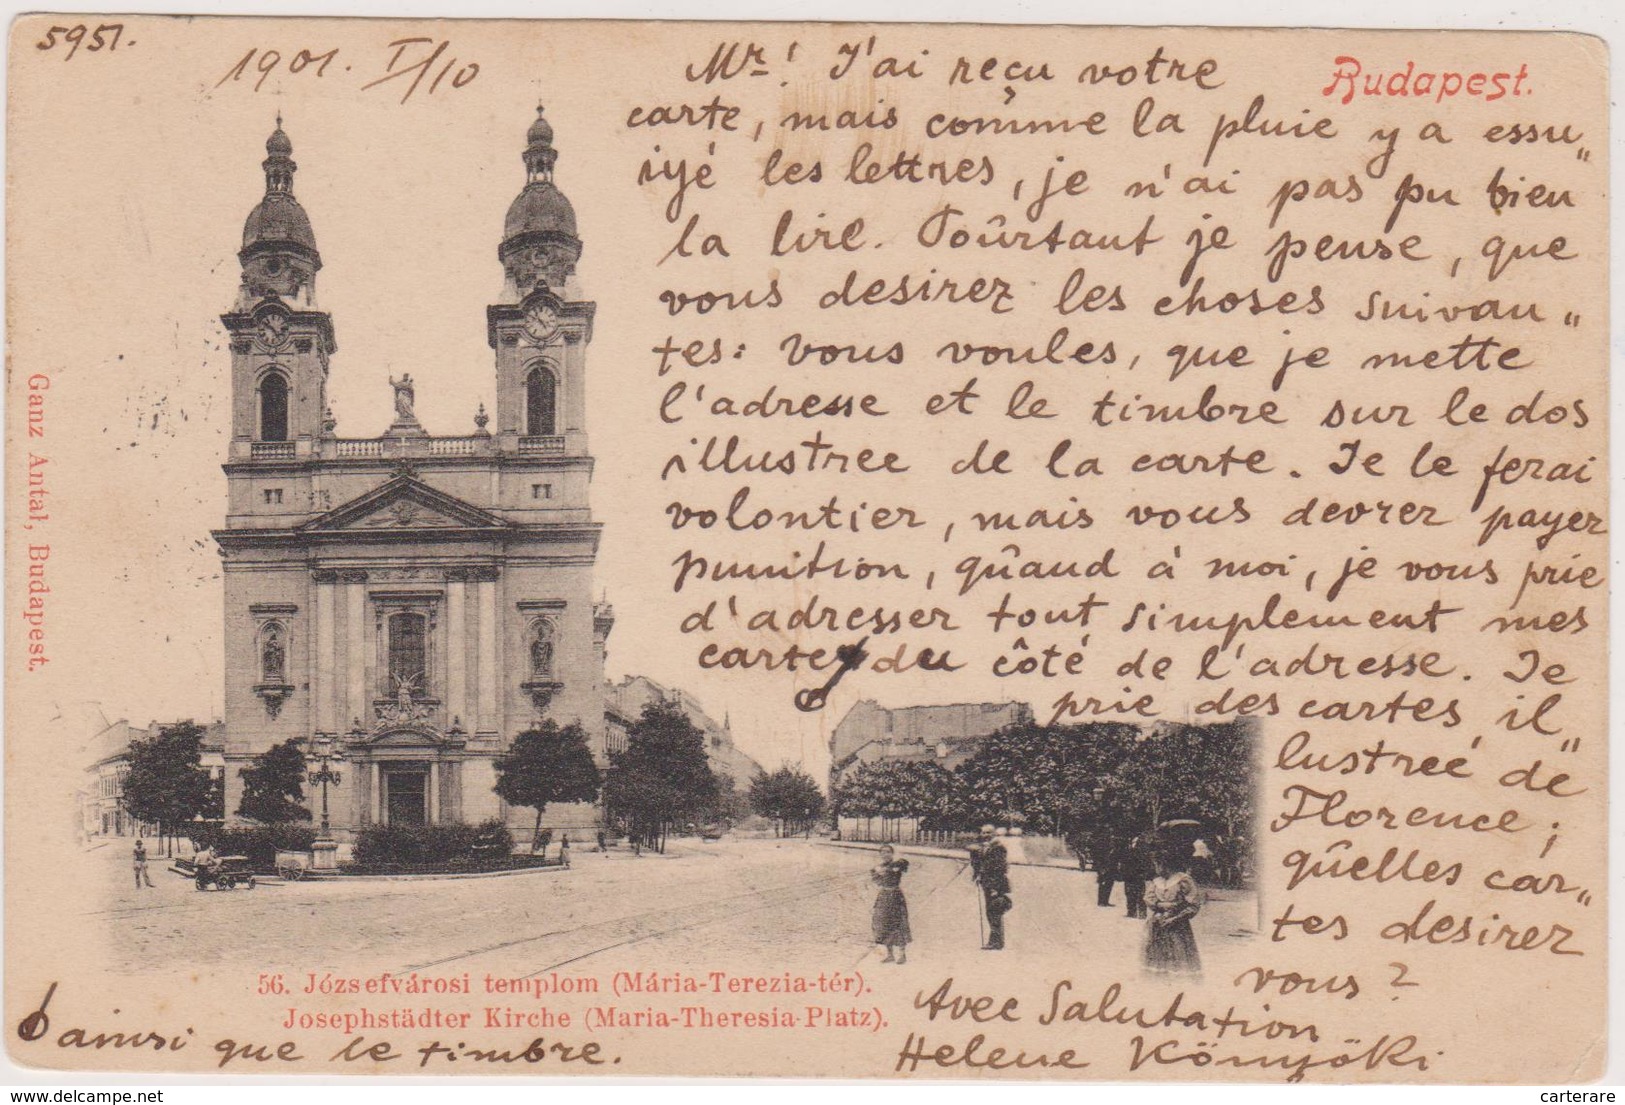 5951.
1901. I/10
Budapest.
Mr! J'ai reçu votre
carte, mais comme la pluie y a essu„
iyé les lettres, je n'ai pas pu bien
la lire. Poûrtant je pense, que
vous desirez les choses suivan„
tes: vous voules, que je mette
l'adresse et le timbre sur le dos
illustree de la carte. Je le ferai
volontier, mais vous devrez payer
punition, qûand à moi, je vous prie
d'adresser tout simplement mes
cartes du côté de l'adresse. Je
prie des cartes il„
lustreé de
Florence;
qûelles car„
tes desirez
vous?
Avec Salutation
Helene Könyöki
ainsi que le timbre.
Ganz Antal, Budapest.
56. Józsefvárosi templom (Mária-Terezia-tér).
Josephstädter Kirche (Maria-Theresia-Platz).
delcampe.net
carterare